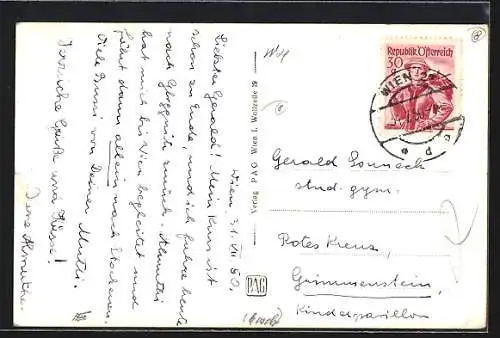 Wien, 31. VII. 50.
Liebster Gerald! Mein Kurs ist
schon zu Ende und ich fahre heute
nach Gloggnitz zurück. Almuth
hat mich bis Wien begleitet und
fährt dann allein nach Stockerau.
Viele Bussi von Deiner Mutti.
Herzliche Grüße und Küsse!
Deine
Verlag PAG Wien I. Wollzeile 19
PAG
Republik Österreich
30
WIEN
Gerald
stud. gym.
Rotes Kreuz,
Grimmenstein,
Kinderpavillon
8
8